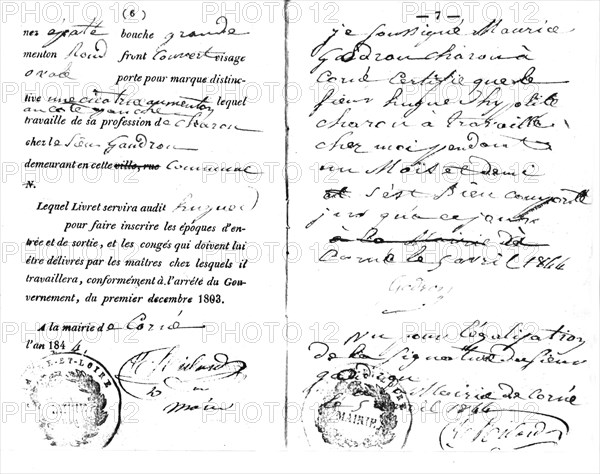 (6)
nez epaté bouche grande
menton Rond front Couvert visage
ovale porte pour marque distinc-
tive une cicatrice au menton lequel
au coté gauche
travaille de sa profession de charon
chez le Sieur Gaudron
demeurant en cette ville, rue Commune
N.
Lequel Livret servira audit hugues
pour faire inscrire les époques d'en-
trée et de sortie, et les congés qui doivent lui
être délivrés par les maîtres chez lesquels il
travaillera, conformément à l'arrêté du Gou-
vernement, du premier decembre 1803.
A la mairie de Corné
l'an 1844.
ET-LOIRE
— 7 —
je soussigné Maurice
Gaudron charon à
Corné certifie que le
sieur hugue
charon à travaillé
chez moi pendant
un Mois et demi
et s'est Bien comporté
jus qu'a ce jour
à la Mairie de
Corné le 5 avril 1844
Vu pour légalisation
de la signature du sieur
Mairie de Corné
le 5 avril 1844
MAIRIE